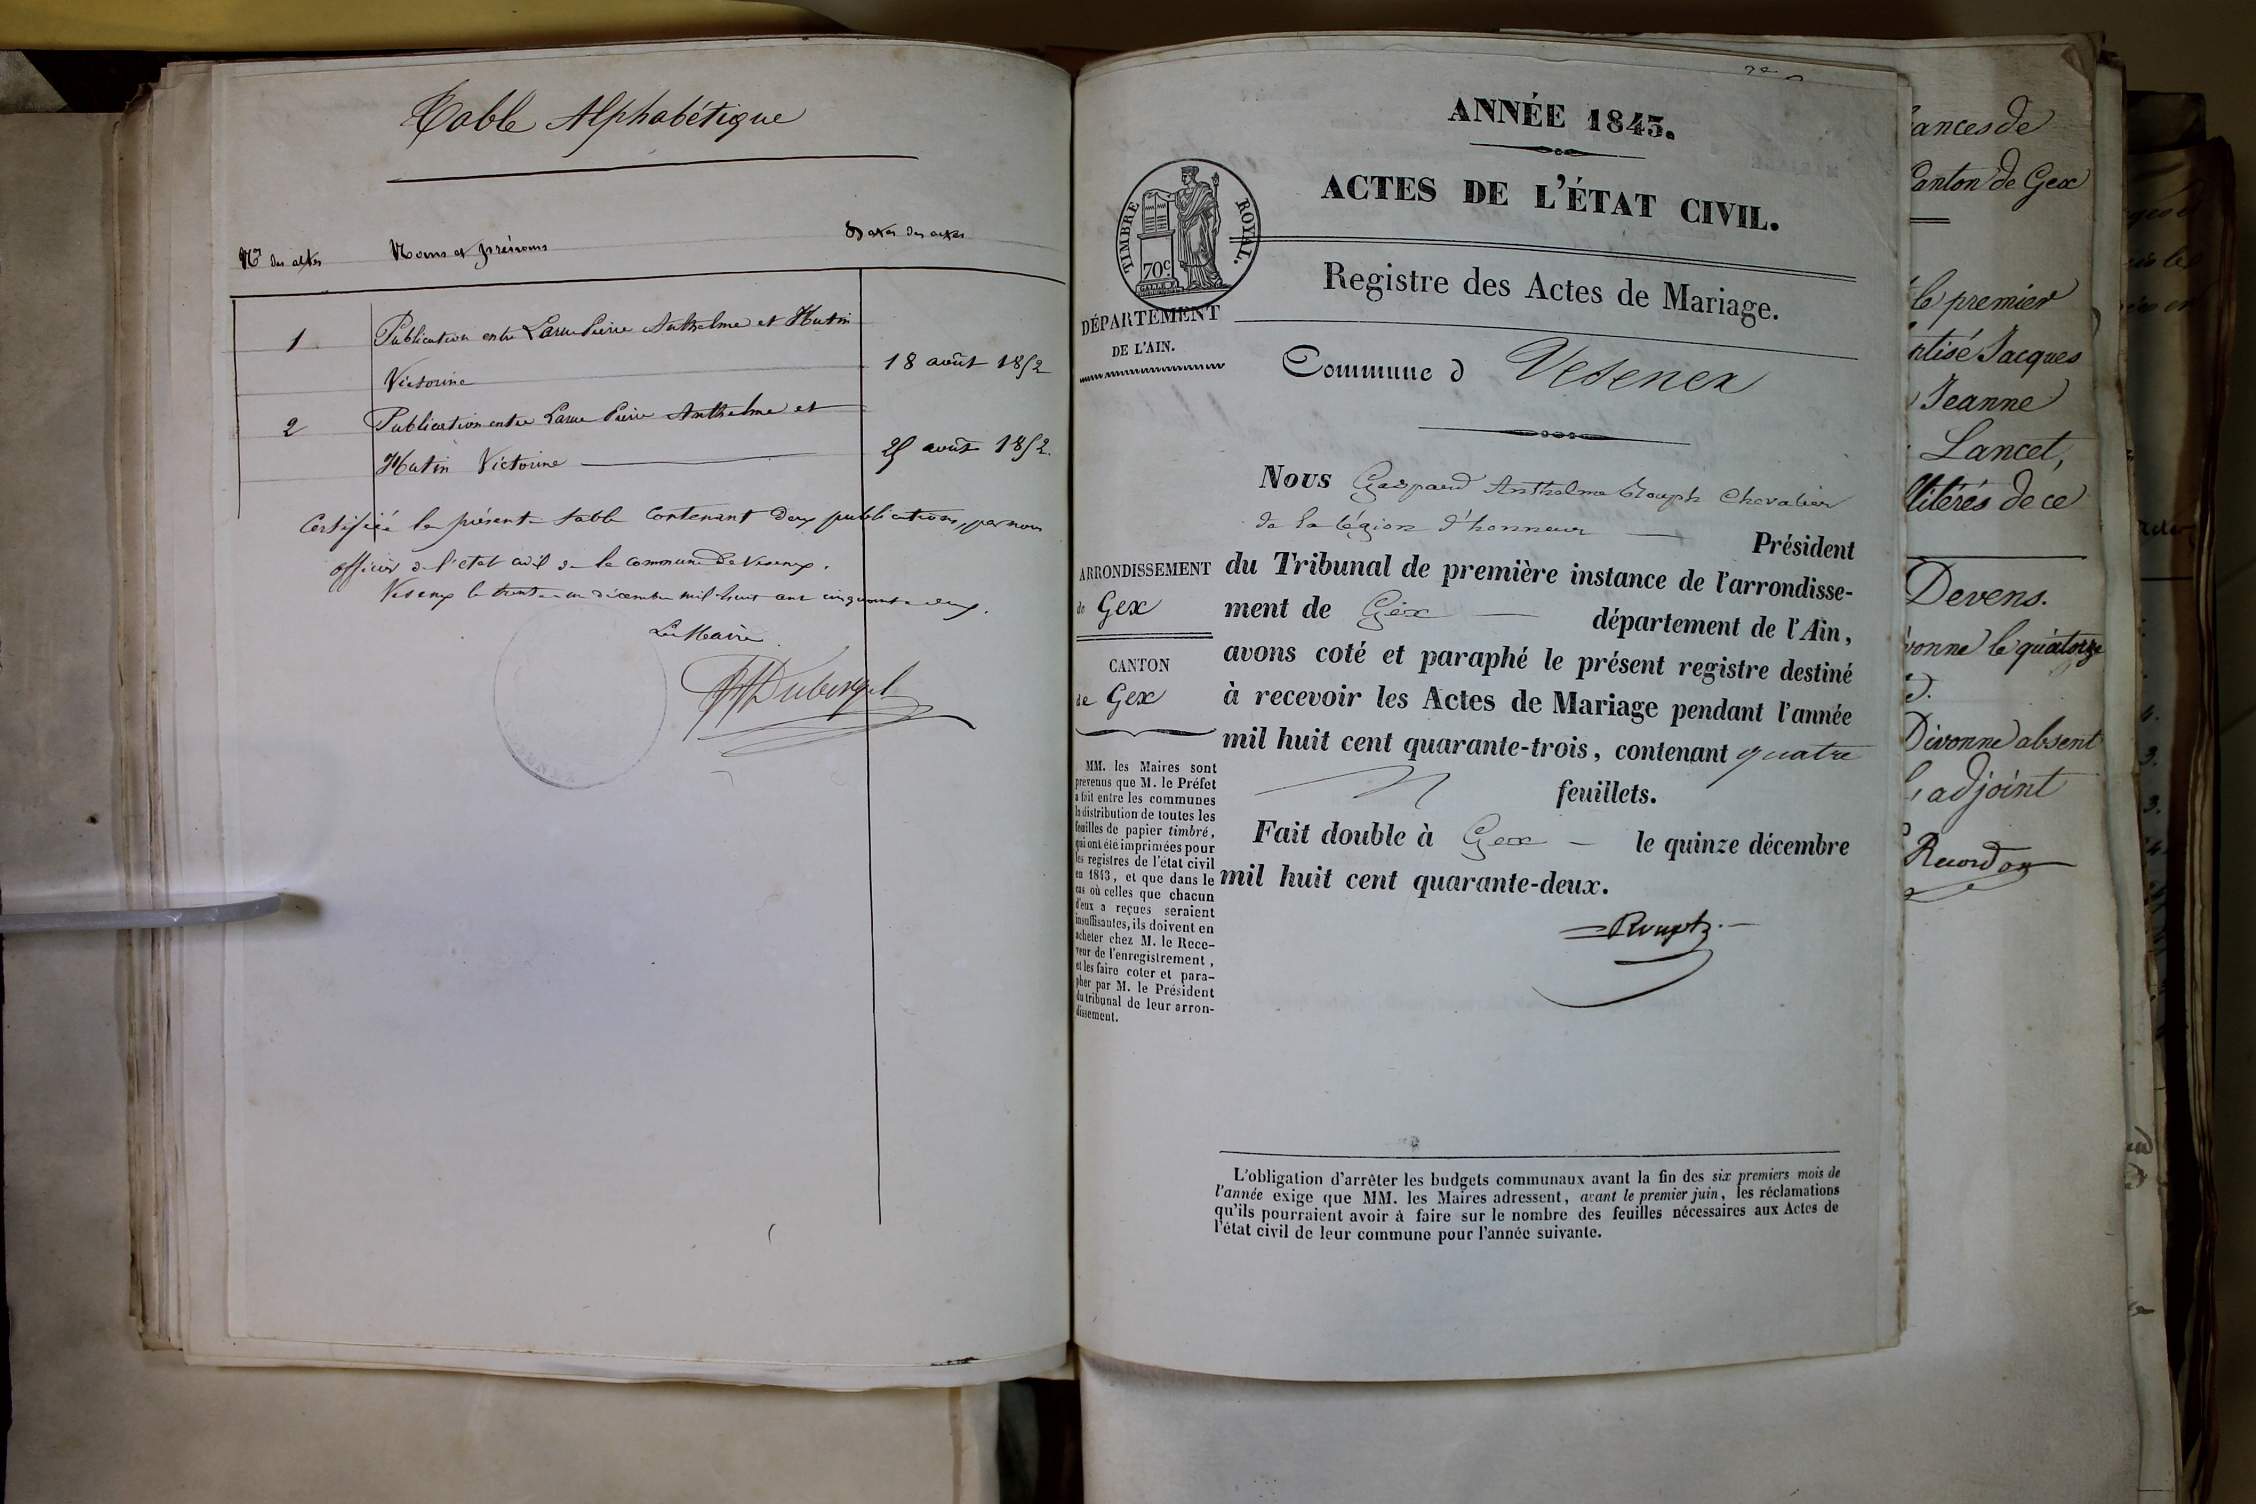 Table Alphabétique
Nos des actes
Noms et prénoms
Dates des actes
1
Publication entre Larue Pierre Anthelme et Hutin
Victorine
18 août 1852
2
Publication entre Larue Pierre Anthelme et
Hutin Victorine
25 août 1852.
Certifiée la présente table contenant deux publications, par nous
officier de l'état civil de la commune de Vesenex.
Vesenex le trente un décembre mil huit cent cinquante deux.
Le Maire
ANNÉE 1843.
ACTES DE L'ÉTAT CIVIL.
TIMBRE ROYAL.
70c
Registre des Actes de Mariage.
DÉPARTEMENT
DE L'AIN.
Commune d Vesenex
Nous Gaspard Anthelme Rouph Chevalier
de la légion d'honneur Président
du Tribunal de première instance de l'arrondisse-
ment de Gex département de l'Ain,
avons coté et paraphé le présent registre destiné
à recevoir les Actes de Mariage pendant l'année
mil huit cent quarante-trois, contenant quatre
feuillets.
Fait double à Gex le quinze décembre
mil huit cent quarante-deux.
Rouph
ARRONDISSEMENT
de Gex
CANTON
de Gex
MM. les Maires sont
prévenus que M. le Préfet
a fait entre les communes
la distribution de toutes les
feuilles de papier timbré,
qui ont été imprimées pour
les registres de l'état civil
en 1843, et que dans le
cas où celles que chacun
d'eux a reçues seraient
insuffisantes, ils doivent en
acheter chez M. le Rece-
veur de l'enregistrement,
et les faire coter et para-
pher par M. le Président
du tribunal de leur arron-
dissement.
L'obligation d'arrêter les budgets communaux avant la fin des six premiers mois de
l'année exige que MM. les Maires adressent, avant le premier juin, les réclamations
qu'ils pourraient avoir à faire sur le nombre des feuilles nécessaires aux Actes de
l'état civil de leur commune pour l'année suivante.
ances de
Canton de Gex
le premier
Jacques
Jeanne
Lancet,
de ce
Devens.
le quatorze
Divonne absent
L'adjoint
Recordon